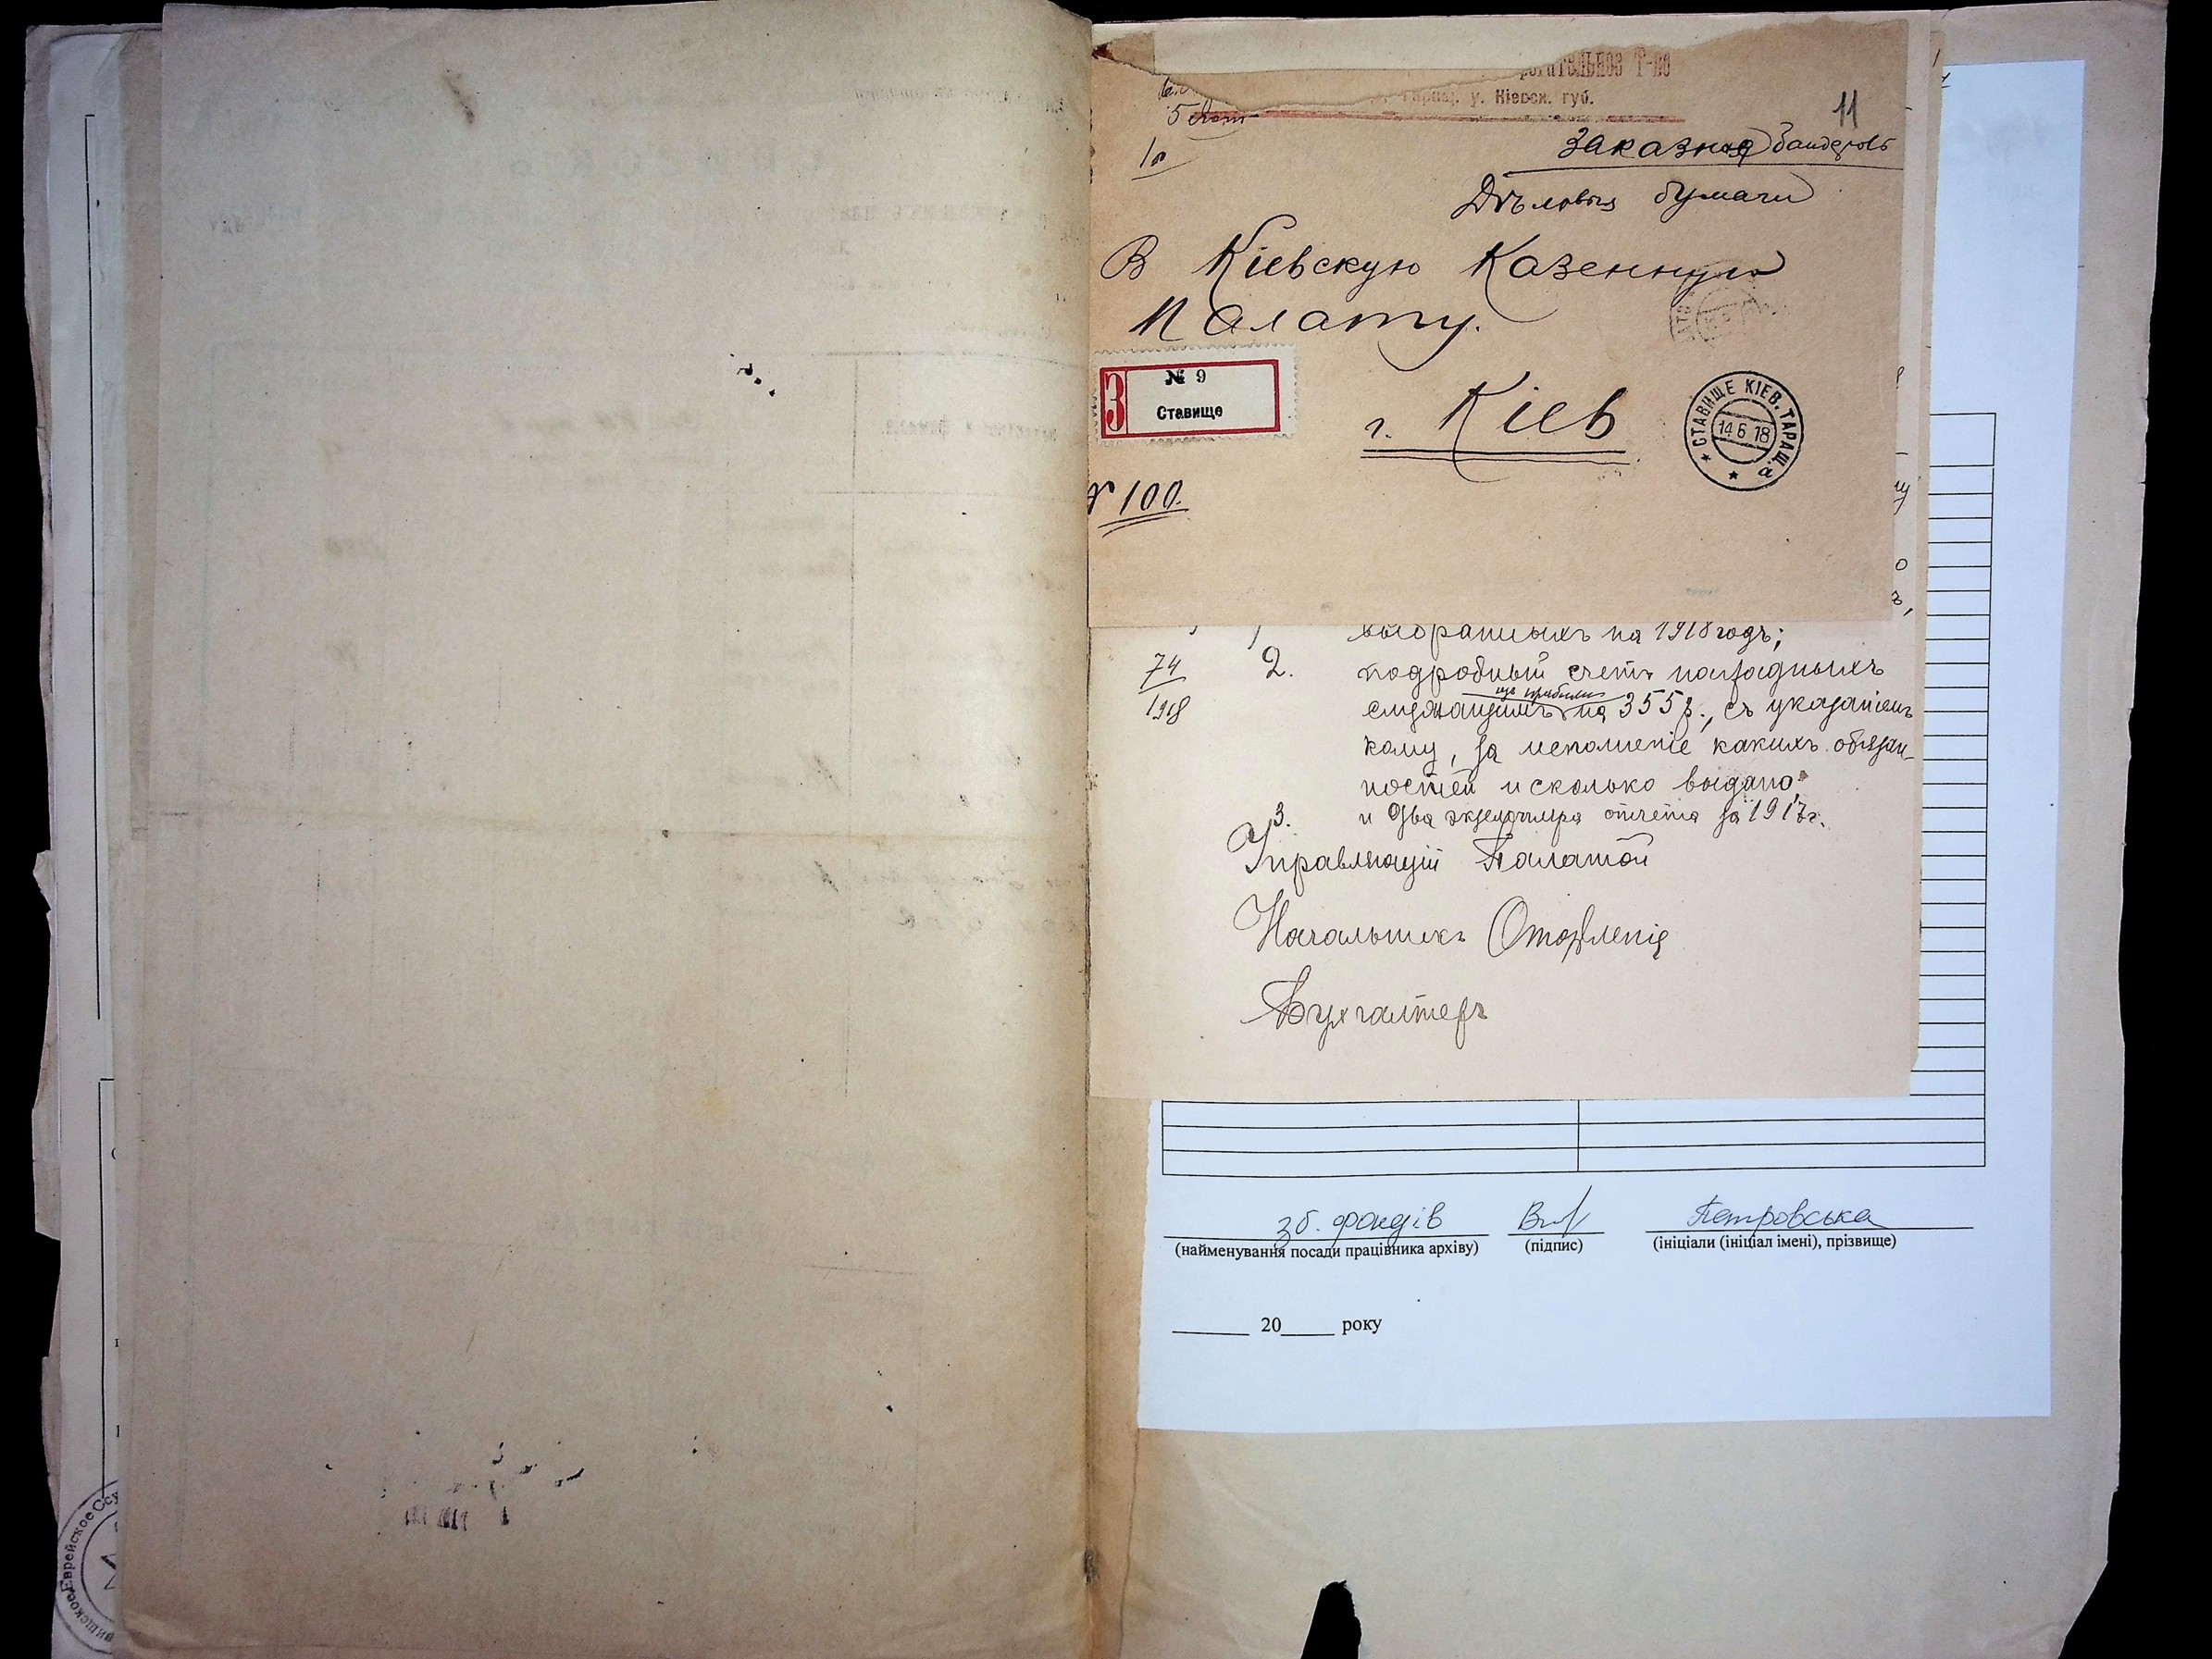 Т-во
у. Кіевск. губ.
11
1р
Заказная бандероль
Дѣловыя бумаги
В Кіевскую Казенную
Палату.
З
№ 9
Ставище
г. Кіев
СТАВИЩЕ КІЕВ. ТАРАЩ.
14 6 18
а
№ 100.
на 1918 годъ;
74
1918
2. подробный счетъ наградныхъ
служащимъ на 355 р., съ указаніемъ
кому, за исполненіе какихъ обязан-
ностей и сколько выдано
3. и два экземпляра отчета за 1917 г.
Управляющій Палатой
Начальникъ Отдѣленія
Бухгалтеръ
зб. фондів
Петровська
(найменування посади працівника архіву) (підпис) (ініціали (ініціал імені), прізвище)
20 року
Еврейское